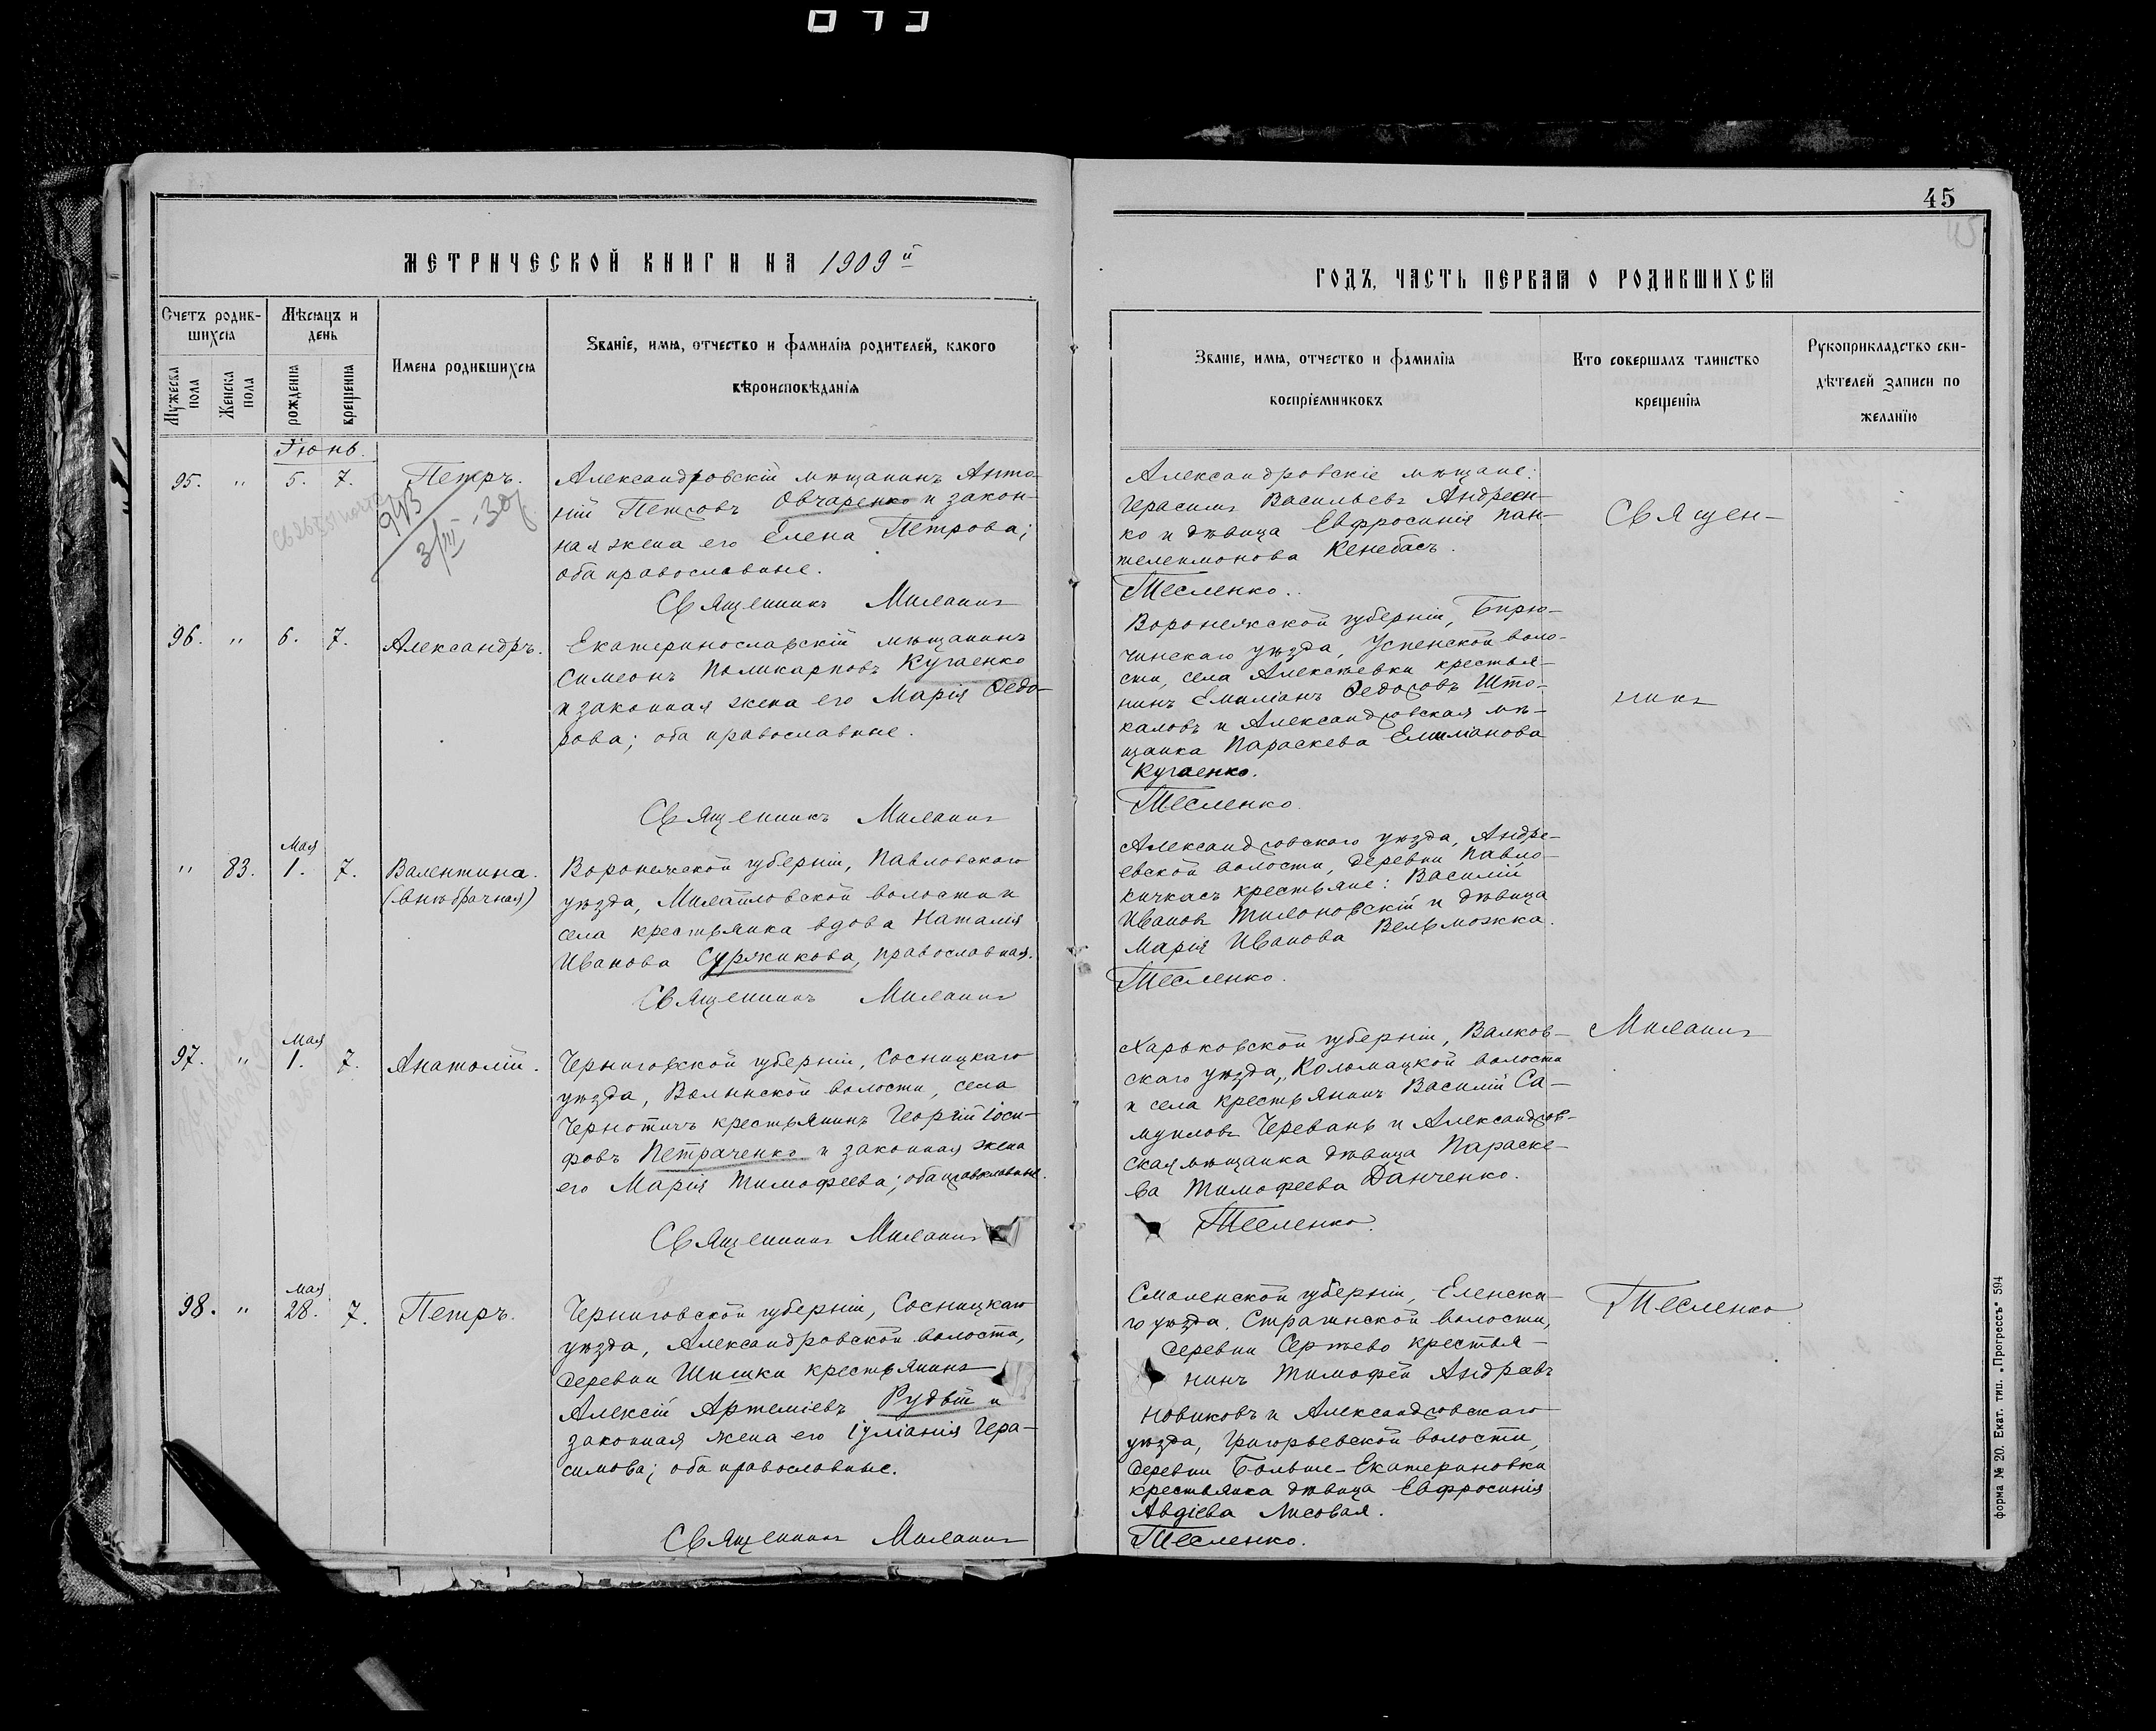 45
МЕТРИЧЕСКОЙ КНИГИ НА 1909й
ГОДЪ, ЧАСТЬ ПЕРВАЯ О РОДИВШИХСЯ
Счетъ родив-
шихся
Мѣсяцъ и
день
Имена родившихся
Званіе, имя, отчество и фамилія родителей, какого
вѣроисповѣданія
Мужеска
пола
Женска
пола
рожденія
крещенія
Званіе, имя, отчество и фамилія
воспріемниковъ
Кто совершалъ таинство
крещенія
Рукоприкладство сви-
дѣтелей записи по
желанію
Іюнь.
95. " 5. 7. Петръ.
943
3/III-30
Александровскій мѣщанинъ Анто-
ній Петровъ Овчаренко и закон-
ная жена его Елена Петрова;
оба православные.
Священникъ Миланич
Александровскіе мѣщане:
Герасимъ Васильевъ Андреен-
ко и дѣвица Евфросинія Пан-
телеимонова Кенебасъ.
Тесленко.
96. " 6. 7. Александръ.
Екатеринославскій мѣщанинъ
Симеонъ Поликарповъ Кугаенко
и законная жена его Марія Ѳедо-
рова; оба православные.
Священникъ Миланич
Воронежской губерніи, Бирю-
чинскаго уѣзда, Успенской воло-
сти, села Алексѣевки крестья-
нинъ Емиліанъ Ѳедоровъ Што-
каловъ и Александровская мѣ-
щанка Параскева Емиліанова
Кугаенко.
Тесленко.
Мая
" 83. 1. 7. Валентина.
(внѣбрачная)
Воронежской губерніи, Павловскаго
уѣзда, Михайловской волости и
села крестьянка вдова Наталія
Иванова Суржикова, православная.
Священникъ Миланич
Александровскаго уѣзда, Андре-
евской волости, деревни Павло-
кичкасъ крестьяне: Василій
Ивановъ Тимоновскій и дѣвица
Марія Иванова Вельможка.
Тесленко.
Мая
97. " 1. 7. Анатолій.
Черниговской губерніи, Сосницкаго
уѣзда, Волынской волости, села
Чернотичъ крестьянинъ Георгій Іоси-
фовъ Петраченко и законная жена
его Марія Тимофеева; оба православные.
Священникъ Миланич
Харьковской губерніи, Валков-
скаго уѣзда, Коломацкой волости
и села крестьянинъ Василій Са-
муиловъ Черевань и Александров-
ская мѣщанка дѣвица Параске-
ва Тимофеева Данченко.
Тесленко.
Мая
98. " 28. 7. Петръ.
Черниговской губерніи, Сосницкаго
уѣзда, Александровской волости,
деревни Шишки крестьянинъ
Алексій Артеміевъ Рудый и
законная жена его Іуліанія Гера-
симова; оба православные.
Священникъ Миланич
Смоленской губерніи, Еленска-
го уѣзда, Стратинской волости,
деревни Сертево крестья-
нинъ Тимофей Андреевъ
Новиковъ и Александровскаго
уѣзда, Григорьевской волости,
деревни Больше-Екатериновки
крестьянка дѣвица Евфросинія
Авдіева Лисовая.
Тесленко.
Священ-
никъ
Миланич
Тесленко
форма № 20. Екат. тип. „Прогрессъ" 594